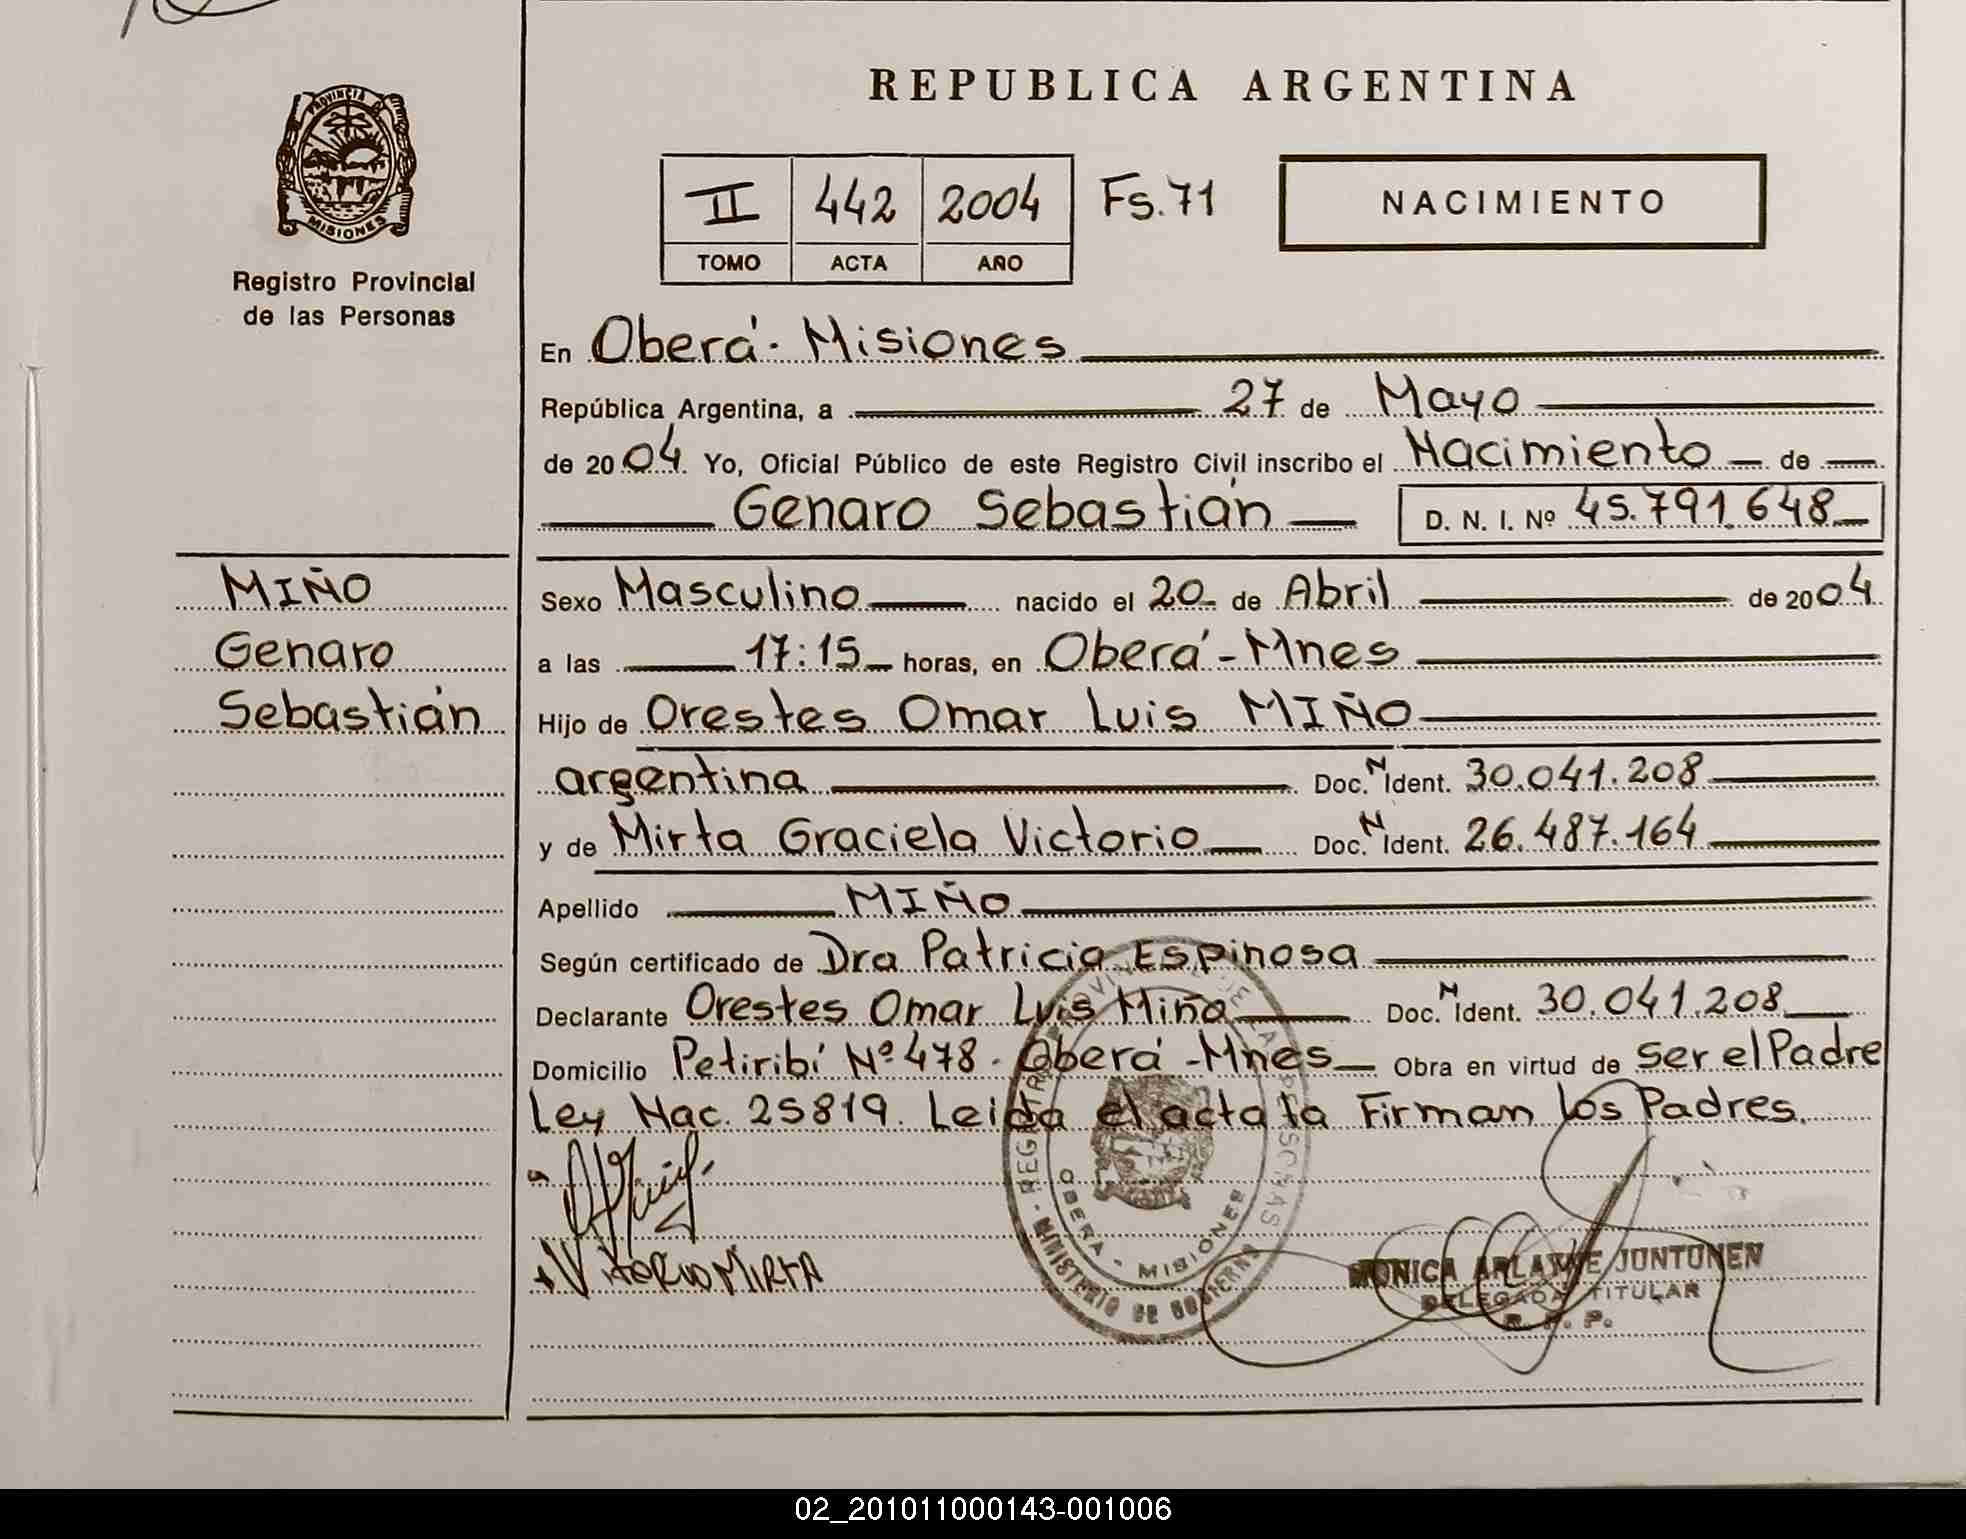 PROVINCIA DE
MISIONES
Registro Provincial
de las Personas
MIÑO
Genaro
Sebastián
REPUBLICA ARGENTINA
II 442 2004 Fs. 71
TOMO ACTA AÑO
NACIMIENTO
En Oberá - Misiones
República Argentina, a 27 de Mayo
de 2004. Yo, Oficial Público de este Registro Civil inscribo el Nacimiento de
Genaro Sebastián D. N. I. Nº 45.791.648
Sexo Masculino nacido el 20 de Abril de 2004
a las 17:15 horas, en Oberá - Mnes
Hijo de Orestes Omar Luis MIÑO
argentina Doc. N Ident. 30.041.208
y de Mirta Graciela Victorio Doc. N Ident. 26.487.164
Apellido MIÑO
Según certificado de Dra Patricia Espinosa
Declarante Orestes Omar Luis Miño Doc. N Ident. 30.041.208
Domicilio Petiribí Nº 478 - Oberá - Mnes Obra en virtud de Ser el Padre
Ley Nac. 25819. Leida el acta la Firman los Padres.
MIRTA
MINISTERIO DE GOBIERNO
OBERA - MISIONES
MONICA ARLAINE JUNTUNEN
DELEGADA TITULAR
R. P. P.
02_201011000143-001006